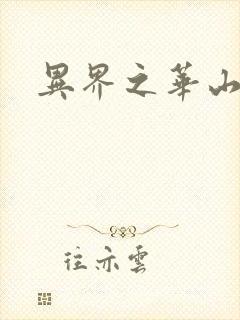 異界之華山
往亦雲